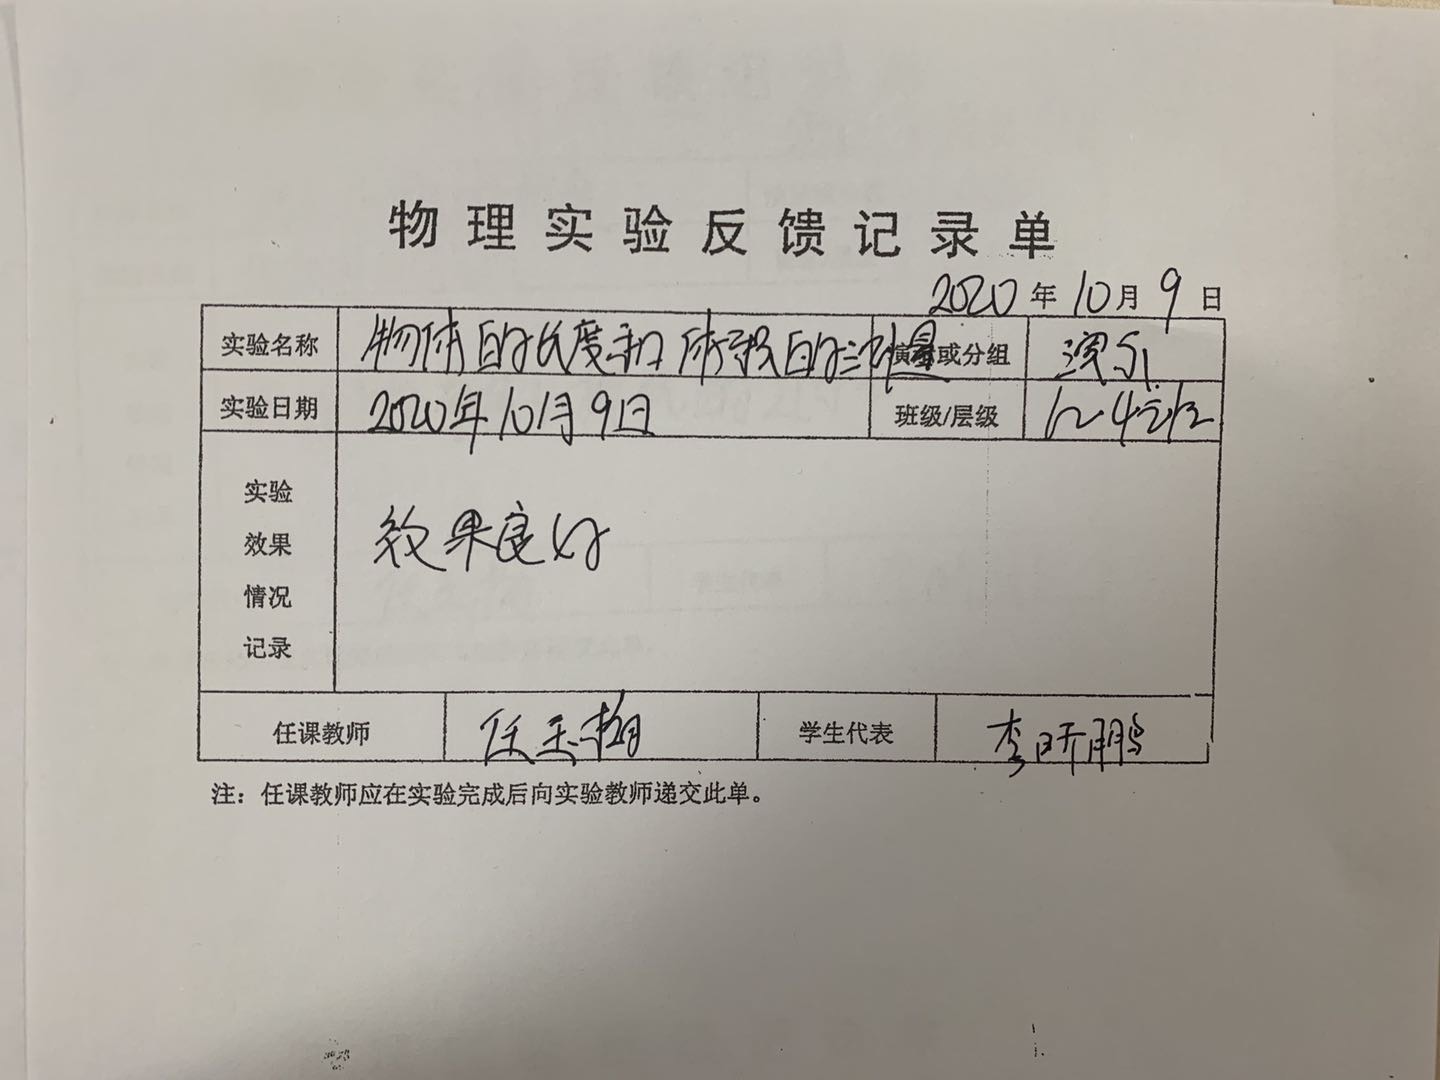 物理实验反馈记录单
2020年10月9日
实验名称 物体的长度和体积的测量 演示或分组 演示
实验日期 2020年10月9日 班级/层级 1~4
实验效果情况记录 效果良好
任课教师 任玉 学生代表 李 鹏
注：任课教师应在实验完成后向实验教师递交此单。